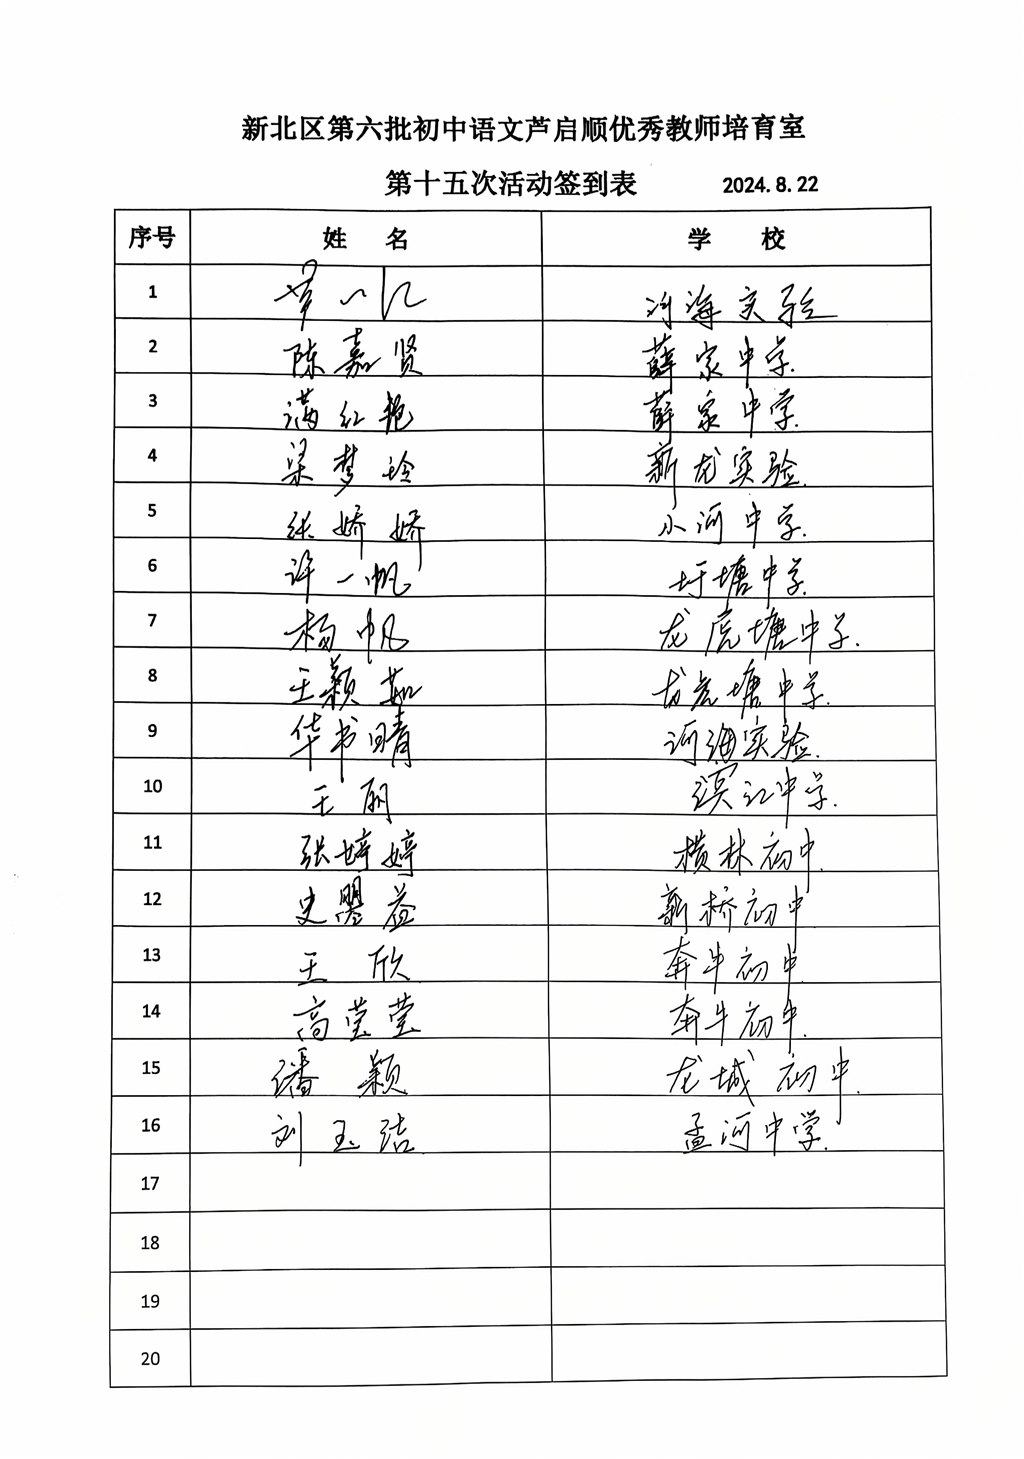 新北区第六批初中语文芦启顺优秀教师培育室
第十五次活动签到表 2024.8.22
序号 姓 名 学 校
1 河海实验
2 陈嘉贤 薛家中学.
3 满红艳 薛家中学.
4 梁梦玲 新龙实验.
5 张娇娇 小河中学.
6 许一帆 圩塘中学.
7 杨帆 龙虎塘中学.
8 王颖茹 龙虎塘中学.
9 华书晴 河海实验.
10 王丽 滨江中学.
11 张婷婷 横林初中.
12 史曌益 新桥初中
13 王欣 奔牛初中
14 高莹莹 奔牛初中.
15 潘颖 龙城初中.
16 刘玉洁 孟河中学.
17
18
19
20